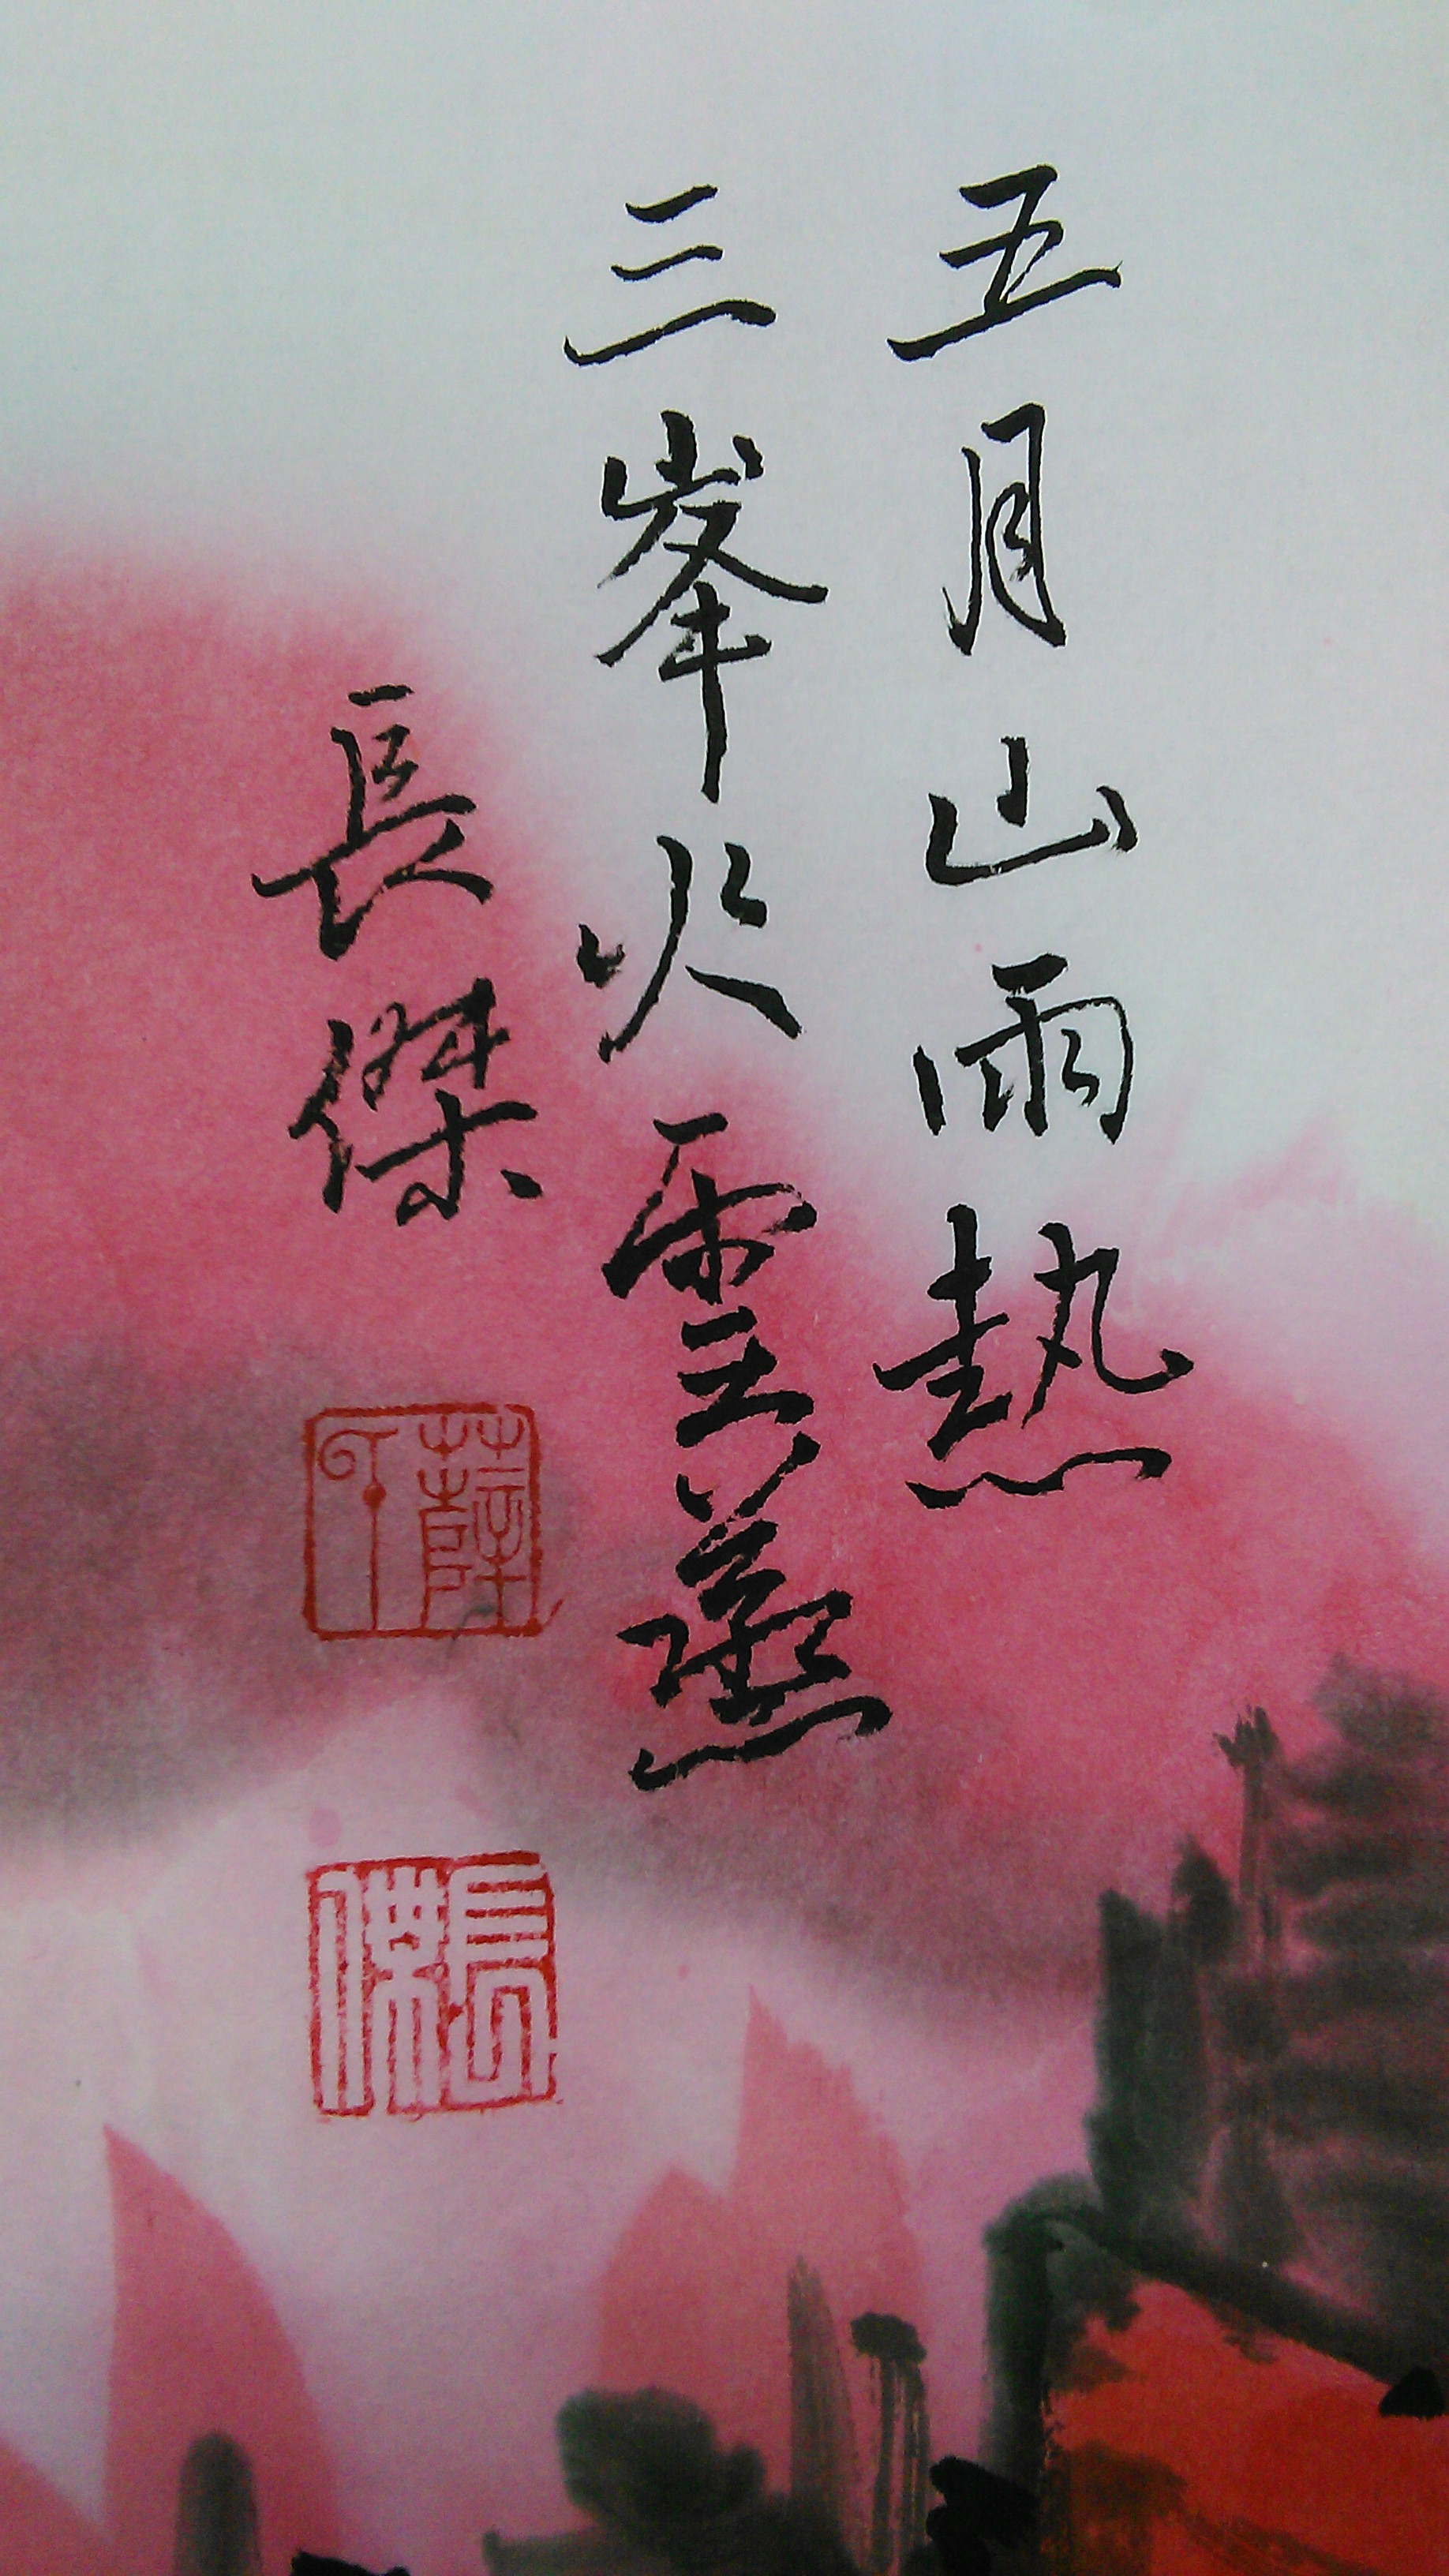 五月山雨熱
三峯火雲蒸
長傑
薛
長傑